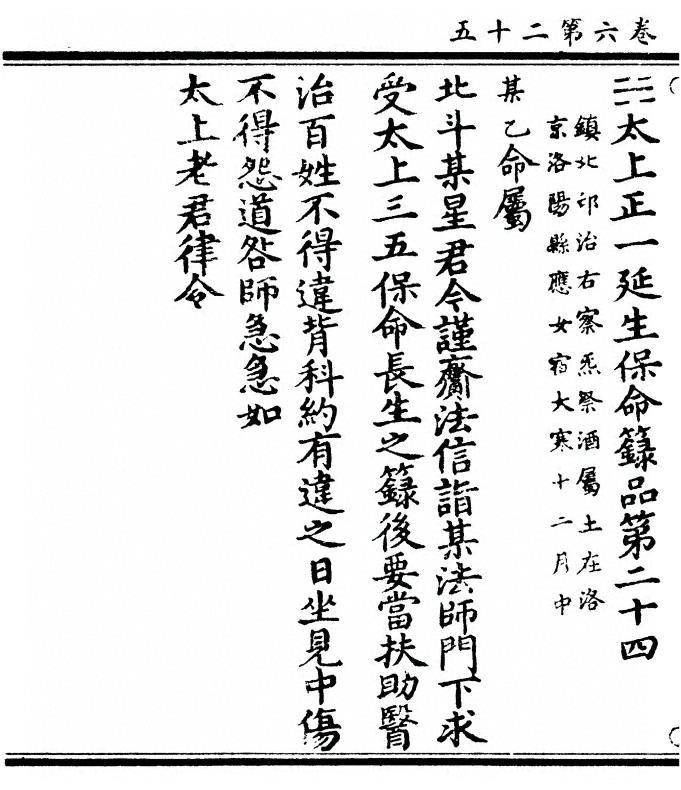 卷六第二十五
太上正一延生保命籙品第二十四
鎮北邙治右察炁祭酒屬土在洛
京洛陽縣應女宿大寒十二月中
某乙命屬
北斗某星君今謹齎法信詣某法師門下求
受太上三五保命長生之籙後要當扶助醫
治百姓不得違背科約有違之日坐見中傷
不得怨道咎師急急如
太上老君律令